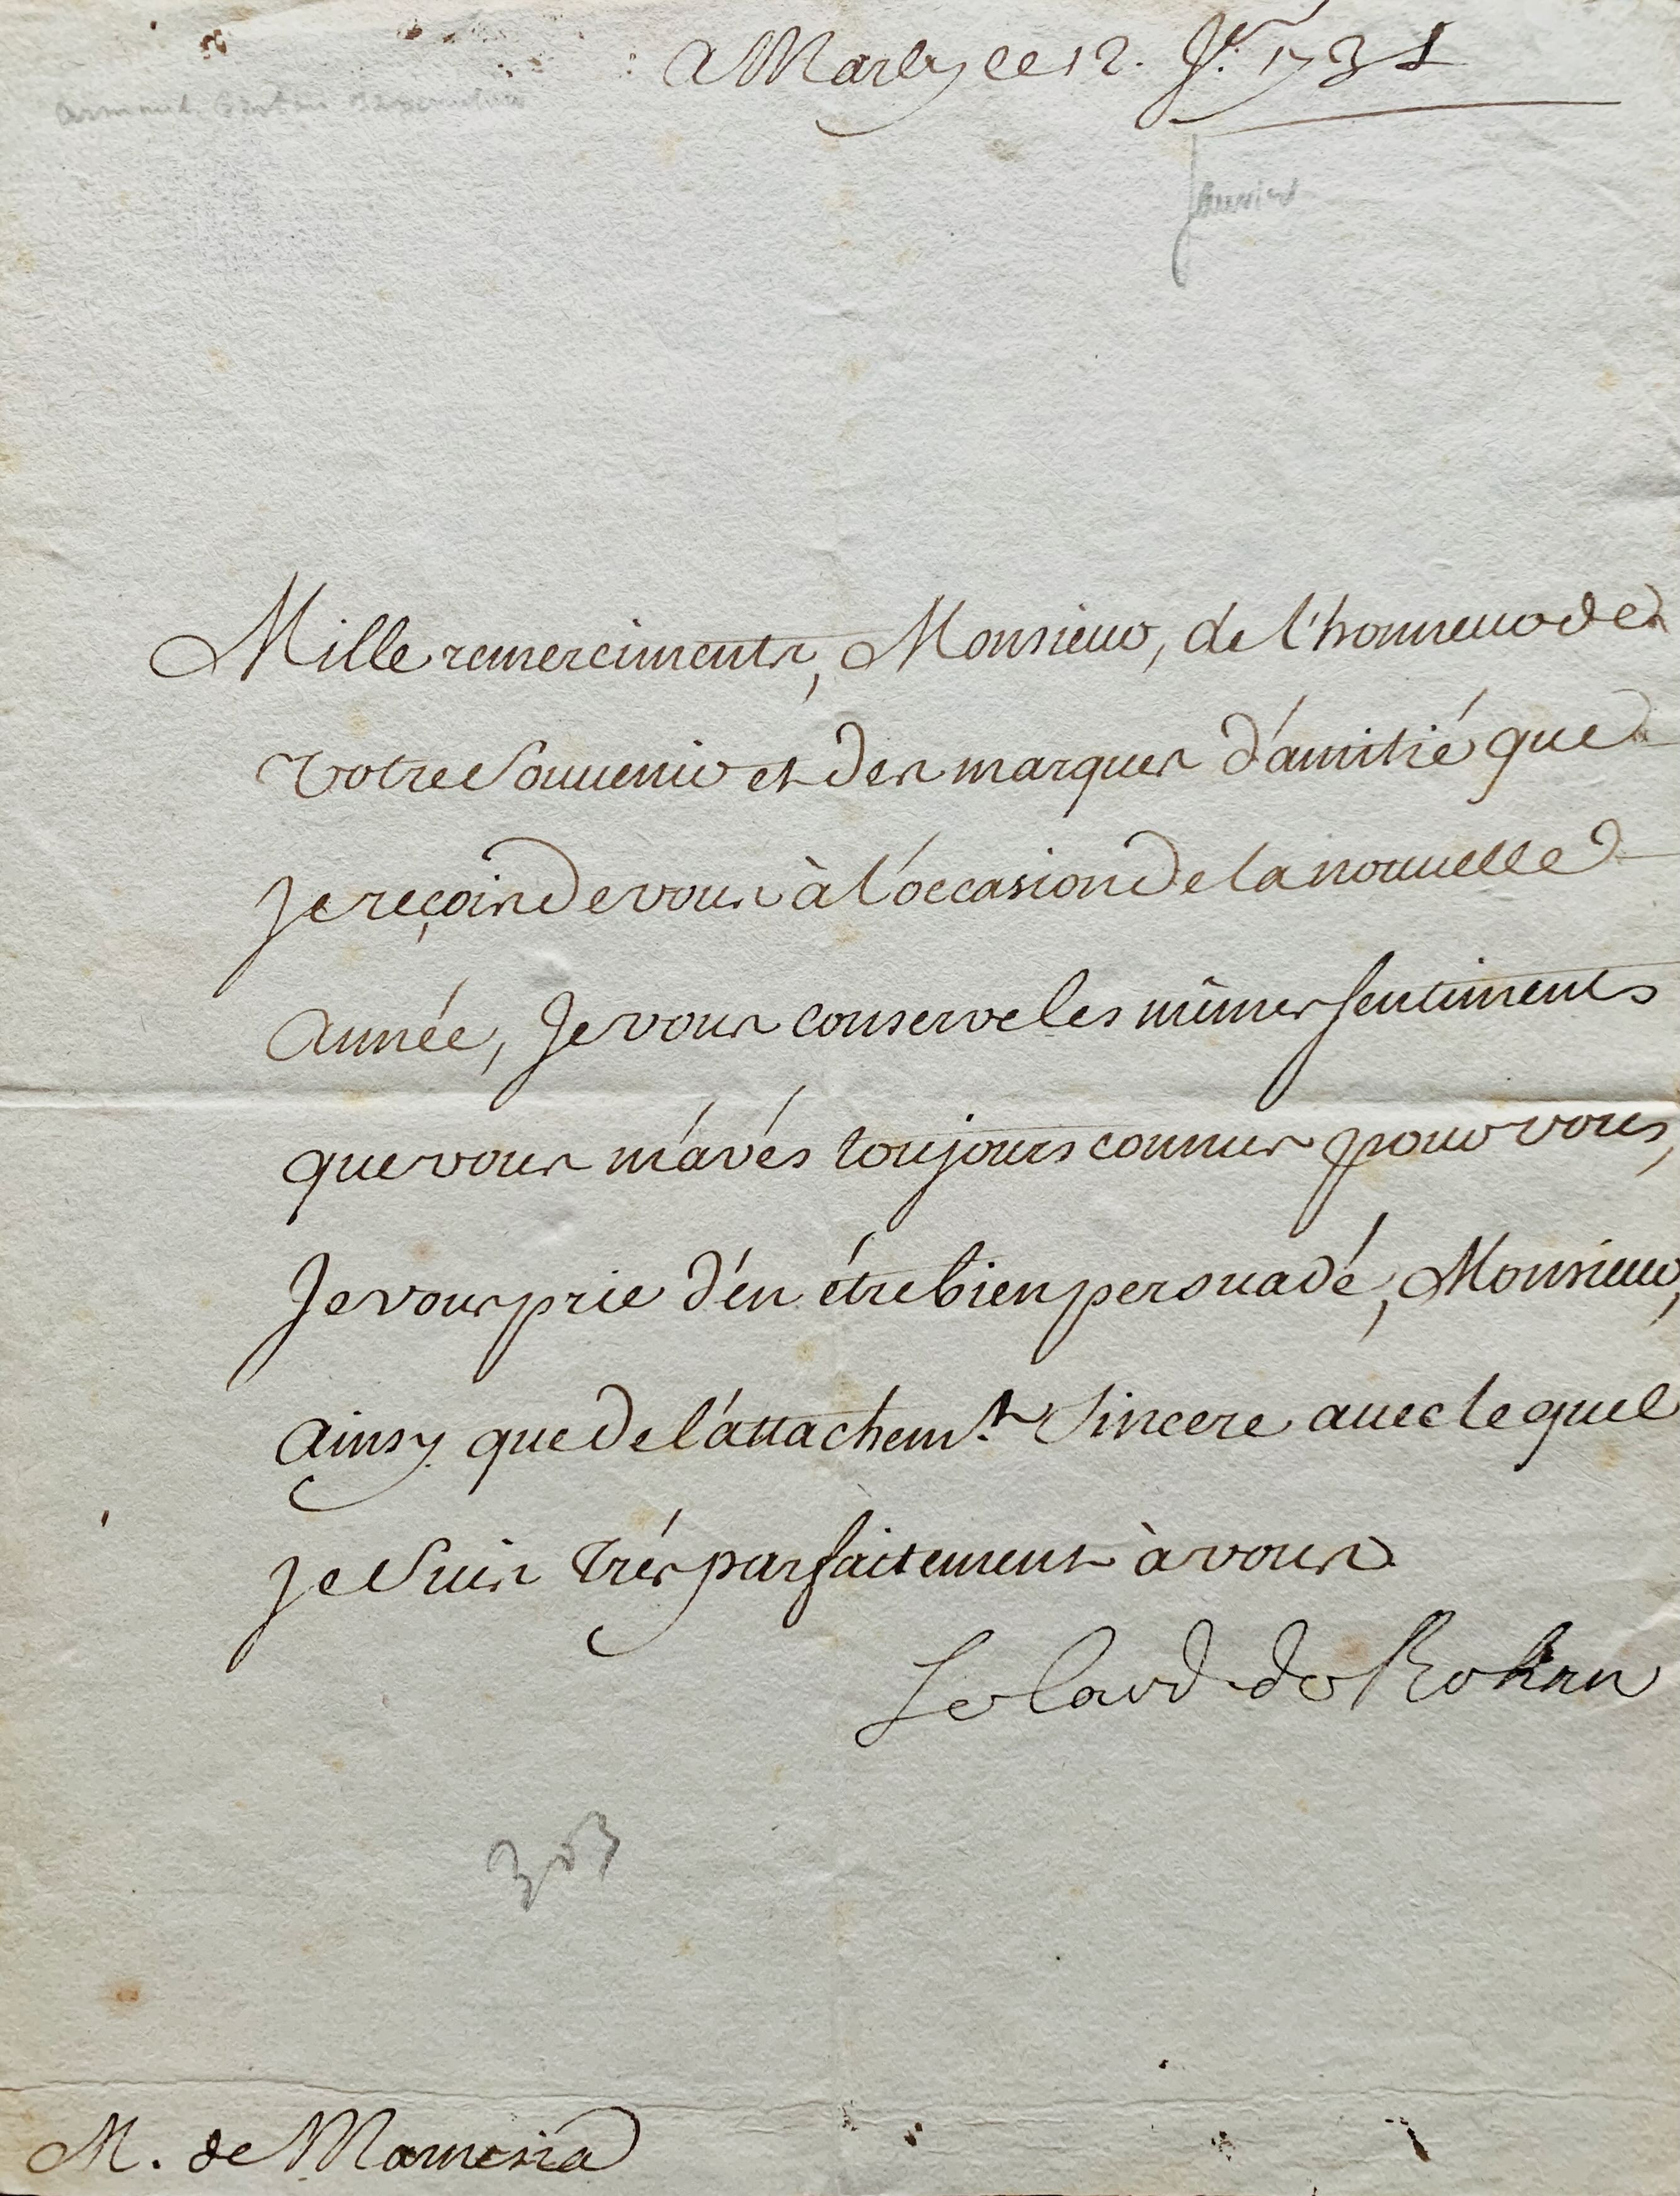 A Marly ce 12. Jr. 1731
Janvier
Mille remerciments, Monsieur, de l'honneur de
votre souvenir et des marques d'amitié que
Je reçois de vous à l'occasion de la nouvelle
année, Je vous conserve les mêmes sentiments
que vous m'avés toujours connus pour vous,
Je vous prie d'en étre bien persuadé, Monsieur,
ainsy que de l'attachemt. sincere avec lequel
Je suis trés parfaitement à vous
Le Card. de Rohan
303
M. de